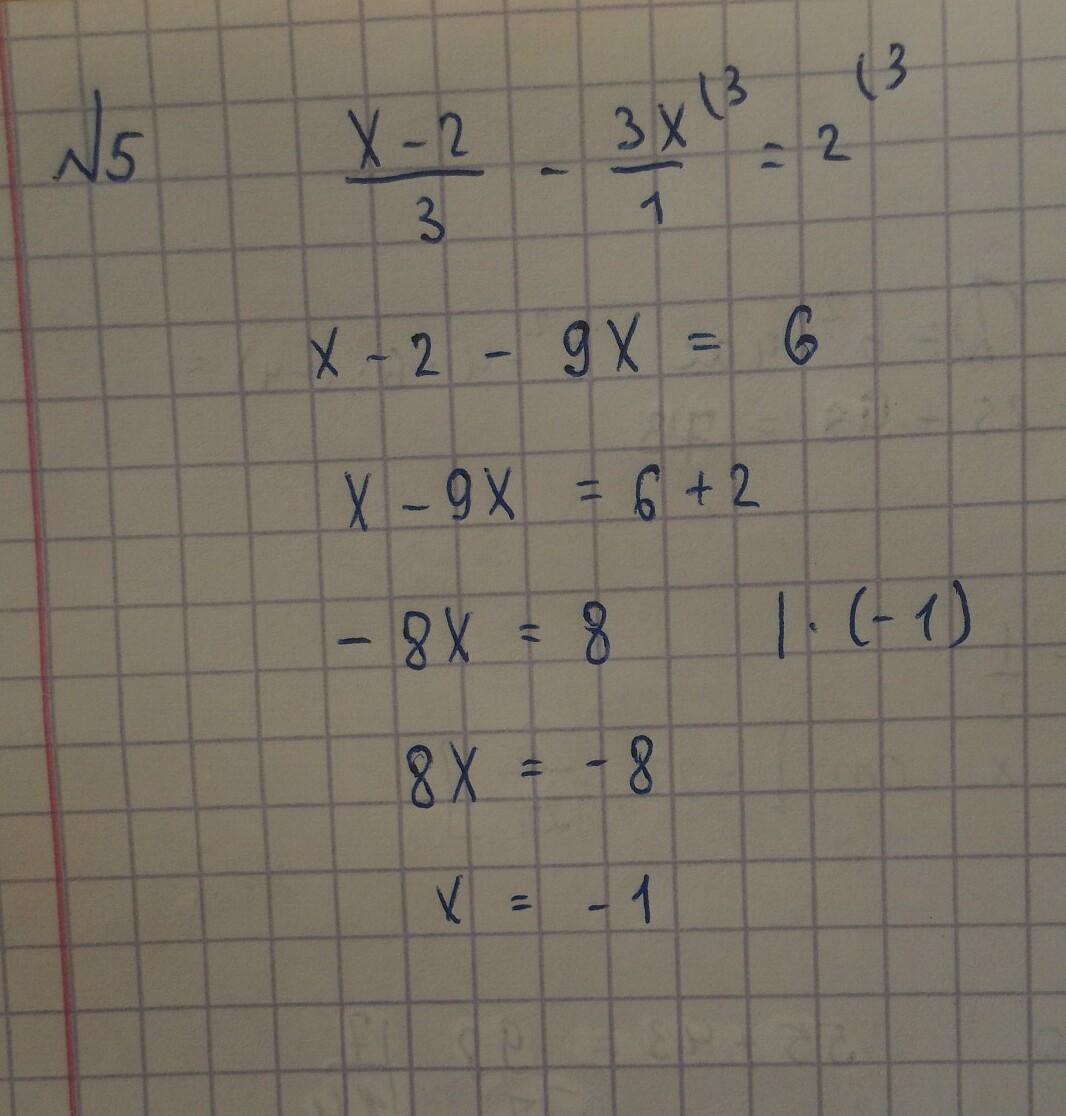 №5 x-2/3 - 3x(3/1 = 2(3
x - 2 - 9x = 6
x - 9x = 6 + 2
- 8x = 8 | · (-1)
8x = - 8
x = - 1